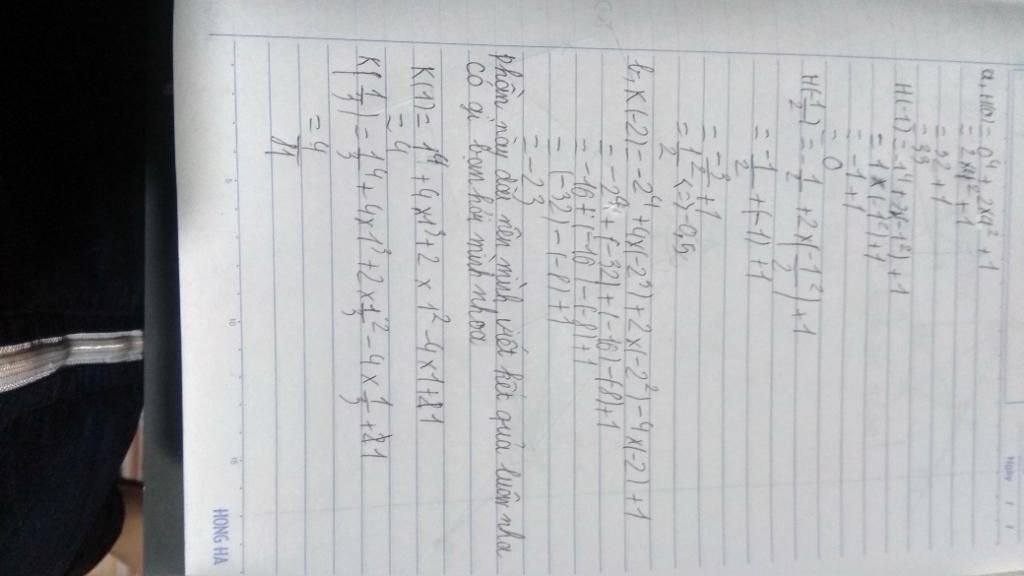 Ngày
a, H(0) = 0⁴ + 2x0² + 1
= 2x4² + 1
= 32 + 1
= 33
H(-1) = -1⁴ + 2x(-1²) + 1
= -1 x (-1²) + 1
= -1 + 1
= 0
H(-1/2) = -1/2 + 2x(-1²/2) + 1
= -1/2 + (-1) + 1
= -3/2 + 1
= -1/2 <=> -0,5
b, K(-2) = -2⁴ + 4x(-2³) + 2x(-2²) - 4x(-2) + 1
= -2⁴ + (-32) + (-16) - (-8) + 1
= -16 + (-16) - (-8) + 1
= (-32) - (-8) + 1
= -23
phần này dài nên mình viết kết quả luôn nha
có gì bạn hỏi mình nha
K(1) = 1⁴ + 4x1³ + 2x1² - 4x1 + 1
= 4
K(1/3) = 1/3⁴ + 4x1³/3 + 2x1²/3 - 4x1/3 + 1
= 4
/81
HONG HA